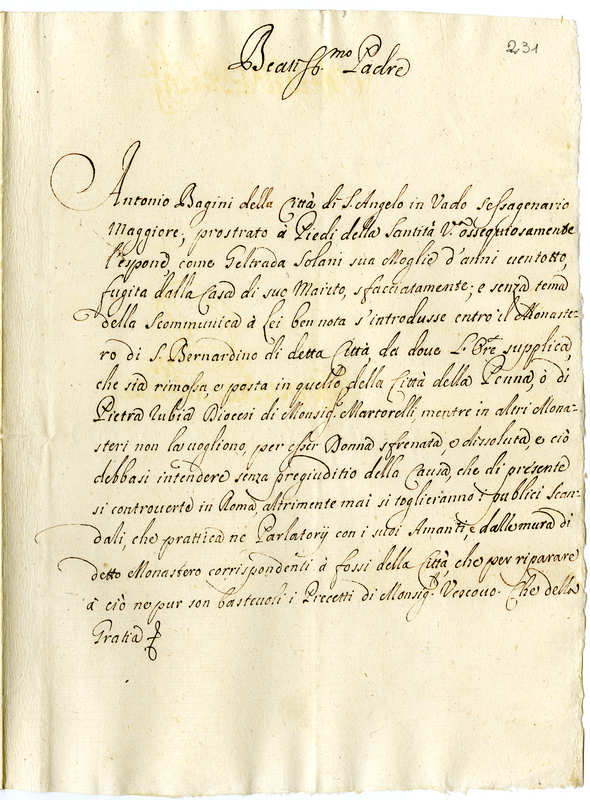 231
Beatiss.mo Padre
Antonio Bagini della Città di S. Angelo in Vado sessagenario
Maggiore, prostrato à Piedi della Santità V.ra ossequiosamente
l'espone, come Geltrada Solani sua Moglie d'anni ventotto,
fugita dalla Casa di suo Marito, sfacciatamente, e senza tema
della Scommunica à Lei ben nota s'introdusse entro il Monaste-
ro di S. Bernardino di detta Città, da dove L'Ore supplica,
che sia rimossa, e posta in quello della Città della Penna, ò di
Pietra Rubia Diocesi di Monsig.r Martorelli mentre in altri Mona-
steri non la vogliono, per esser Donna sfrenata, e dissoluta, e ciò
debbasi intendere senza pregiuditio della Causa, che di presente
si controverte in Roma, altrimente mai si toglieranno i publici Scan-
dali, che prattica ne Parlatorij con i suoi Amanti, e dalle mura di
detto Monastero corrispondenti à fossi della Città, che per riparare
à ciò ne pur son bastevoli i Precetti di Monsig.r Vescovo. Che della
Gratia